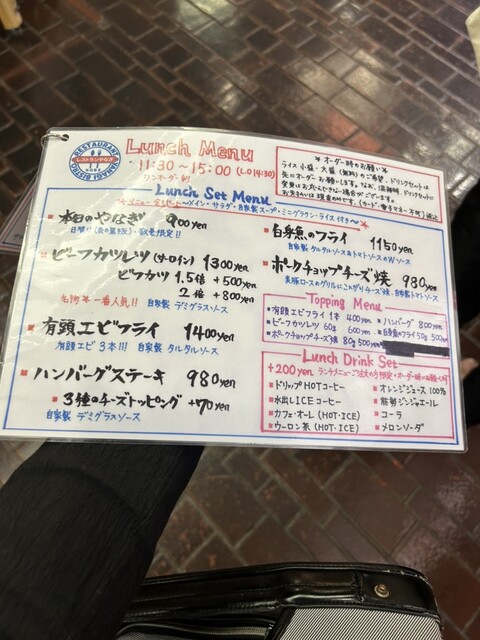 RESTAURANT
レストランやなぎ
KOBE
YANAGI BISTRO
Lunch Menu
11:30～15:00 (L.O 14:30)
ワンオーダー制
Lunch Set Menu
～メイン・サラダ・自家製スープ・ミニグラタン・ライス付き～
本日のやなぎ 900yen
日替り 数量限定!!
ビーフカツレツ (サーロイン) 1300yen
ビーフカツ 1.5倍 +500yen
2倍 +800yen
名物 一番人気!! 自家製 デミグラスソース
有頭エビフライ 1400yen
有頭エビ 3本!!! 自家製 タルタルソース
ハンバーグステーキ 980yen
3種のチーズトッピング +70yen
自家製 デミグラスソース
*オーダー時のお願い*
ライス 小盛・大盛(無料)のご希望、ドリンクセットは
先にオーダーお願いします。
税込
白身魚のフライ 1150yen
自家製 タルタルソース&トマトソースのWソース
ポークチョップチーズ焼 980yen
Topping Menu
有頭エビフライ 1本 400yen
ハンバーグ 800yen
ビーフカツレツ 60g 600yen
白身魚のフライ 50g 500yen
ポークチョップチーズ焼 80g 500yen
Lunch Drink Set
+200yen ランチメニューご注文の方限定・オーダー時のお願い
ドリップHOTコーヒー
オレンジジュース 100%
水出しICEコーヒー
能勢ジンジャエール
カフェ・オーレ (HOT・ICE)
コーラ
ウーロン茶 (HOT・ICE)
メロンソーダ